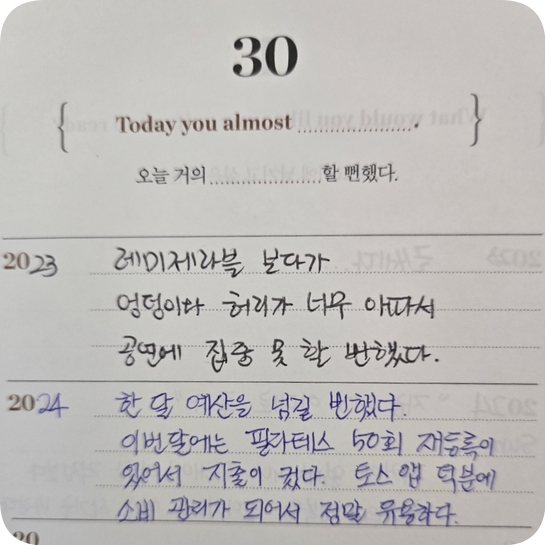 30
{ Today you almost ................. }
오늘 거의....................할 뻔했다.
2023 레미제라블 보다가
엉덩이와 허리가 너무 아파서
공연에 집중 못 할 뻔했다.
2024 한 달 예산을 넘길 뻔했다.
이번달에는 필라테스 50회 재등록이
있어서 지출이 컸다. 토스앱 덕분에
소비 관리가 되어서 정말 유용하다.
20